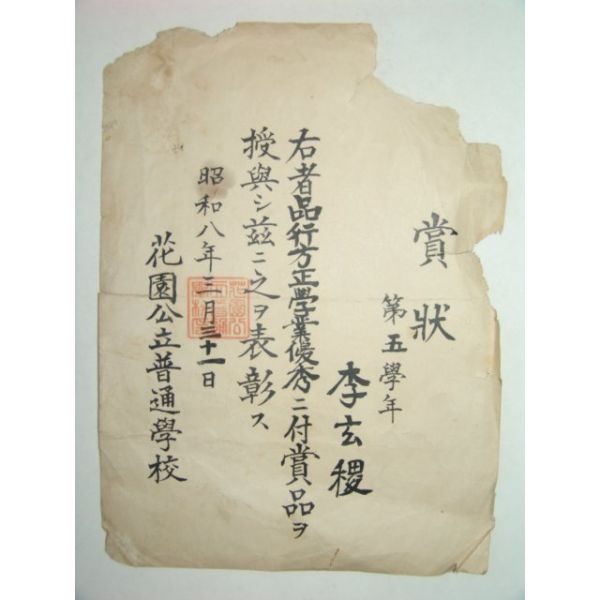 賞狀
第五學年
李玄稷
右者品行方正學業優秀ニ付賞品ヲ
授與シ茲ニ之ヲ表彰ス
昭和八年三月三十一日
花園公立普通學校